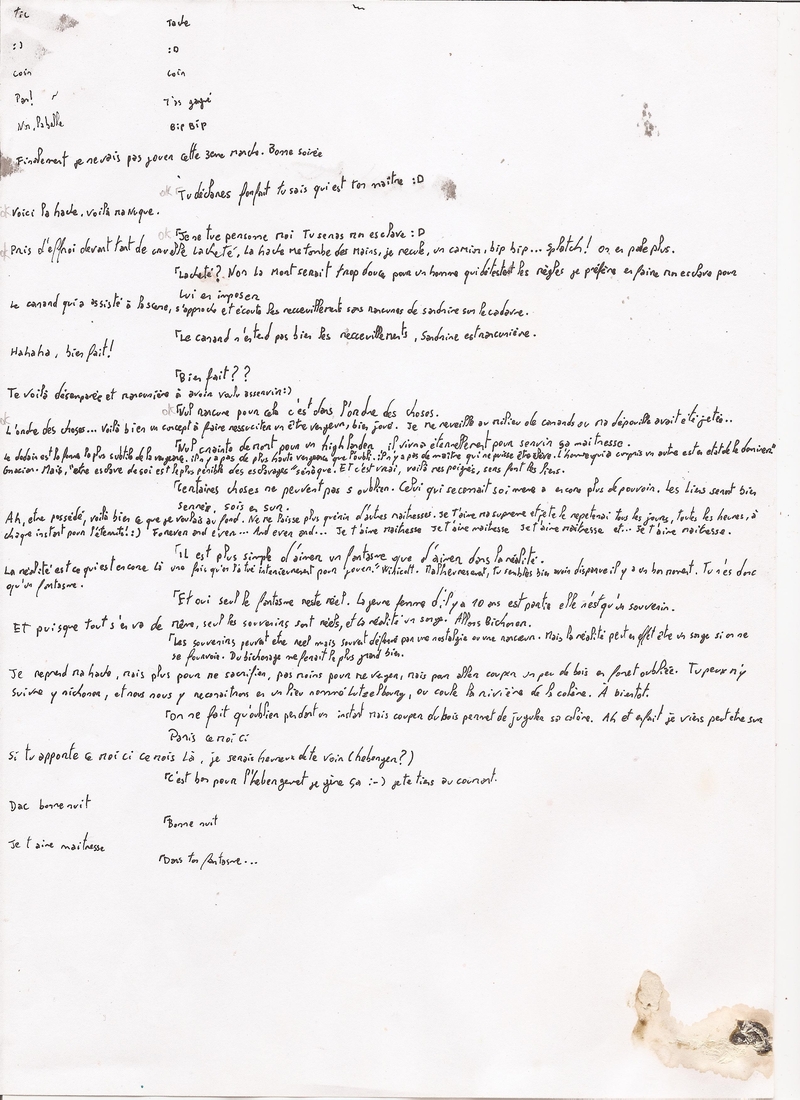 tic
Tade
:)
:D
coin
coin
Pan!
T'as gagné
Non, la balle
Bip Bip
Finalement je ne vais pas jouer cette 3ème manche. Bonne soirée
ok Tu déclares forfait tu sais qui est ton maître :D
ok Voici la hache, voilà ma nuque.
ok Je ne tue personne moi Tu seras mon esclave :D
ok Pris d'effroi devant tant de lacheté, La hache me tombe des mains, je recule, un camion, bip bip... Splotch! on en parle plus.
Lacheté? Non La mort serait trop douce pour un homme qui détestait les règles je préfère en faire mon esclave pour
lui en imposer
Le canard qui a assisté à la scene, s'approche et écoute les receuvillements sans rancunes de sandrine sur le cadavre.
Le canard n'entend pas bien les receuvillements, Sandrine est rancunière.
Hahaha, bien fait!
Bien fait??
Te voilà désemparée et rancunière à avoir voulu asservir :)
ok Nul rancune pour cela c'est dans l'ordre des choses.
ok L'ordre des choses... voilà bien un concept à faire ressusciter un être vengeur, bien joué. Je me reveille au milieu de canards ou ma dépouille avait été jetée..
Nul crainte de mort pour un highlander il vivra éternellement pour servir sa maitresse.
Le dedain est la forme la plus subtile de la vengence. Il n'y a pas de plus haute vengence que l'oubli. Il n'y a pas de maître qui ne puisse être élève. L'homme qui a compris un autre est en état de le dominer"
Gracian. Mais, "être esclave de soi est le plus pénible des esclavages" sénèque. Et c'est vrai, voilà mes poignés, sens font les liens.
Certaines choses ne peuvent pas s oublier. Celui qui se connait soi meme a encore plus de pouvoir. Les liens seront bien
serrés, sois en sur.
Ah, etre possédé, voilà bien ce que je voulais au fond. Ne me laisse plus prévenir d'autres maitresses. Je t'aime ma supreme et je te le repeterai tous les jours, toutes les heures, à
chaque instant pour l'éternité! :) Forever and ever... And ever and... Je t'aime maitresse Je t'aime maitresse Je t'aime maitresse et... Je t'aime maitresse.
il est plus simple d'aimer un fantasme que d'aimer dans la réalité.
La réalité est ce qui est encore là une fois qu'on l'a tué interieurement pour jouer." Winicott. Malheureusement, tu sembles bien avoir disparue il y a un bon moment. Tu n'es donc
qu'un fantasme.
Et oui seul le fantasme reste réel. La jeune femme d'il y a 10 ans est partie elle n'est qu'un souvenir.
Et puisque tout s'en va de même, seul les souvenirs sont réels, et la réalité un songe. Allons Bichonner.
Les souvenirs peuvent être reel mais souvent déformé par une nostalgie ou une rancoeur. Mais la réalité peut en effet être un songe si on ne
se fourvoie. Du bichonage me ferait le plus grand bien.
Je reprend ma hache, mais plus pour me sacrifier, pas moins pour me venger, mais pour aller couper un peu de bois en foret oubliée. Tu peux m'y
suivre y nichoner, et nous nous y reconaitrons en un lieu nommé Lutzelbourg, ou coule la rivière de la colère. A bientot.
on ne fait qu'oublier pendant un instant mais couper du bois permet de juguler sa colère. Ah et en fait je viens peut etre sur
Paris ce moi ci
Si tu apporte ce moi ci ce mois là, je serais heureux de te voir (heberger?)
C'est bon pour l'hebergement je gère ça :-) je te tiens au courrant.
Dac bonne nuit
Bonne nuit
Je t aime maitresse
Dans ton fantasme...